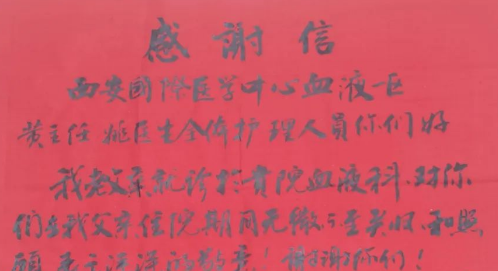 感謝信
西安國際医学中心血液一区
黄主任 姚医生全体护理人員你们好
我老父亲就诊於貴院血液科、对你
们在我父亲住院期间无微不至关心和照
顾表示深深的敬意！谢谢你们！